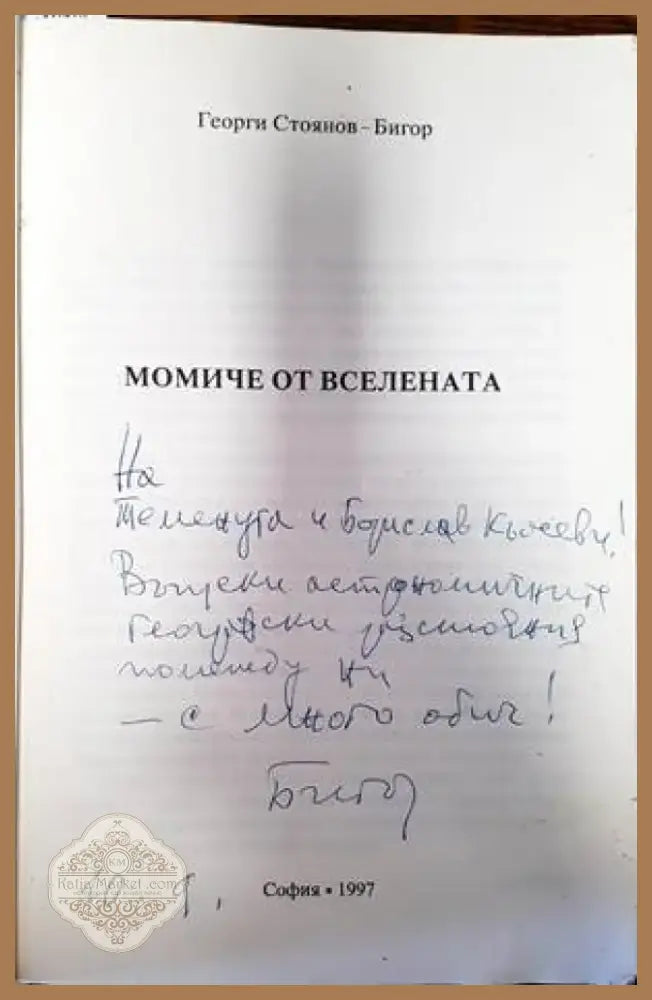 Георги Стоянов – Бигор
МОМИЧЕ ОТ ВСЕЛЕНАТА
На
Теменуга и Борислав Кьосеви!
Въпреки астрономичните
географски разстояния
помежду ни
— с много обич!
Бигор
KM
KatjaMarket.com
София • 1997